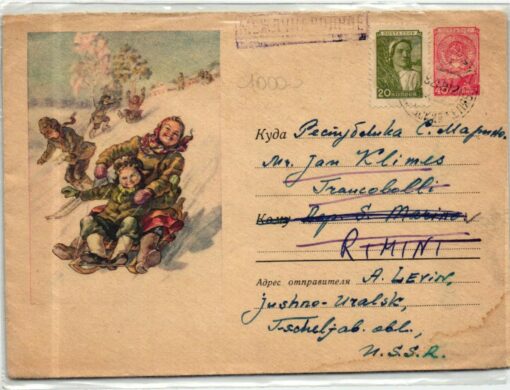 МЕЖДУНАРОДНОЕ
1000
ПОЧТА СССР
20 КОПЕЕК
40
Куда Республика С. Марино
Mr. Jan Klimes
Francobolli
Кому Rep. S. Marino
RIMINI
Адрес отправителя A. LEVIN,
jushno-Uralsk,
Tscheljab. obl.,
U.S.S.R.